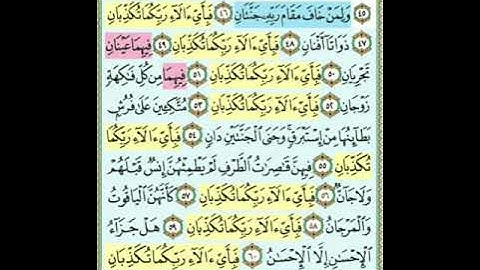 ٤٥ وَلِمَنْ خَافَ مَقَامَ رَبِّهِۦ جَنَّتَانِ ٤٦ فَبِأَيِّ ءَالَآءِ رَبِّكُمَا تُكَذِّبَانِ
٤٧ ذَوَاتَآ أَفْنَانٍ ٤٨ فَبِأَيِّ ءَالَآءِ رَبِّكُمَا تُكَذِّبَانِ ٤٩ فِيهِمَا عَيْنَانِ
تَجْرِيَانِ ٥٠ فَبِأَيِّ ءَالَآءِ رَبِّكُمَا تُكَذِّبَانِ ٥١ فِيهِمَا مِن كُلِّ فَٰكِهَةٍ
زَوْجَانِ ٥٢ فَبِأَيِّ ءَالَآءِ رَبِّكُمَا تُكَذِّبَانِ ٥٣ مُتَّكِـِٔينَ عَلَىٰ فُرُشٍۭ
بَطَآئِنُهَا مِنْ إِسْتَبْرَقٍ وَجَنَى ٱلْجَنَّتَيْنِ دَانٍ ٥٤ فَبِأَيِّ ءَالَآءِ رَبِّكُمَا
تُكَذِّبَانِ ٥٥ فِيهِنَّ قَٰصِرَٰتُ ٱلطَّرْفِ لَمْ يَطْمِثْهُنَّ إِنسٌ قَبْلَهُمْ
وَلَا جَآنٌّ ٥٦ فَبِأَيِّ ءَالَآءِ رَبِّكُمَا تُكَذِّبَانِ ٥٧ كَأَنَّهُنَّ ٱلْيَاقُوتُ
وَٱلْمَرْجَانُ ٥٨ فَبِأَيِّ ءَالَآءِ رَبِّكُمَا تُكَذِّبَانِ ٥٩ هَلْ جَزَآءُ
ٱلْإِحْسَٰنِ إِلَّا ٱلْإِحْسَٰنُ ٦٠ فَبِأَيِّ ءَالَآءِ رَبِّكُمَا تُكَذِّبَانِ